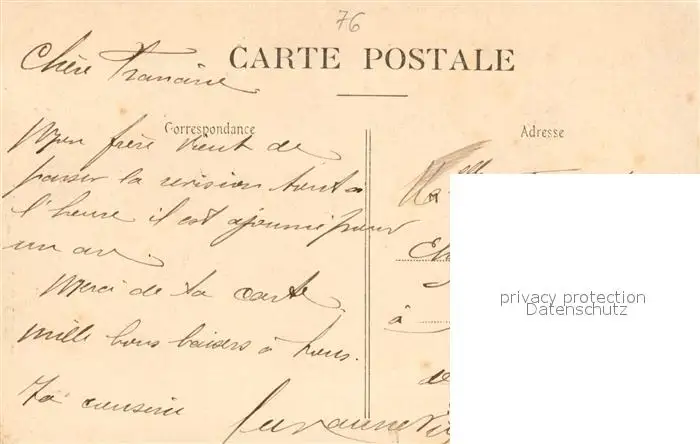 76
CARTE POSTALE
Chère Francine
Correspondance
Adresse
Mon frère vient de
passer la révision tout à
l'heure il est ajourné pour
un an.
Merci de ta carte
mille bons baisers à tous.
Ta cousine
à
de
privacy protection
Datenschutz